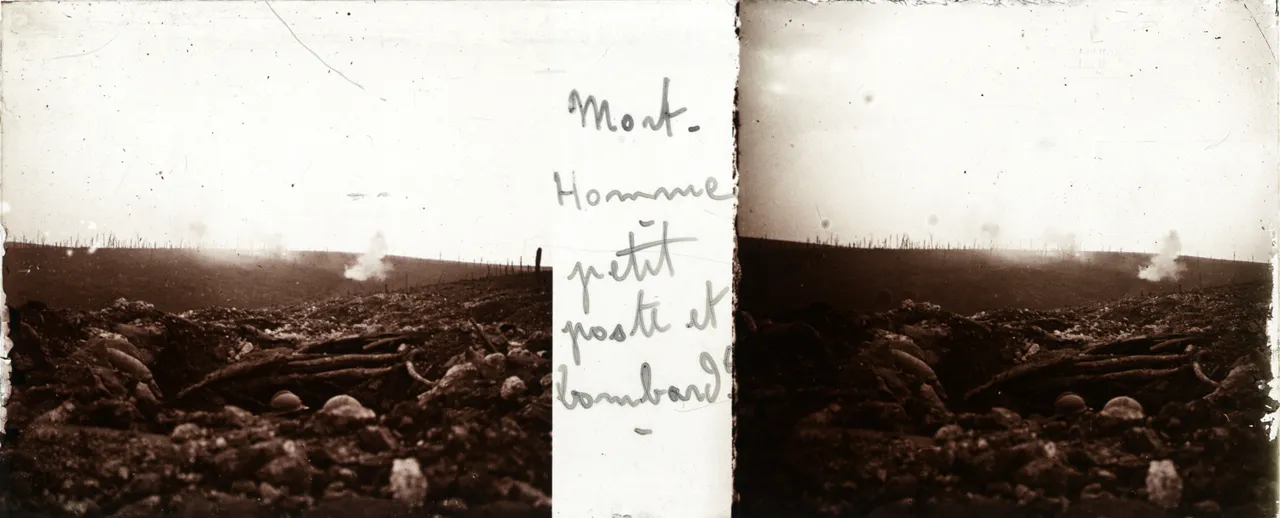 Mort-
Homme
petit
poste et
bombardt